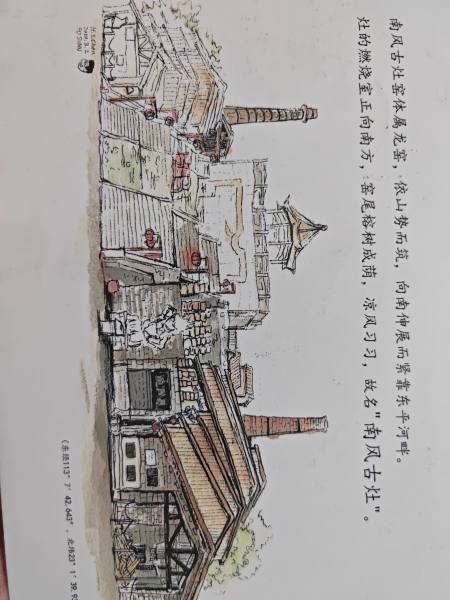 南风古灶窑体属龙窑，依山势而筑，向南伸展而紧靠东平河畔。
灶的燃烧室正向南方，窑尾榕树成荫，凉风习习，故名"南风古灶"。
(东经113° 7′ 42.643″ , 北纬23° 1′ 39.9